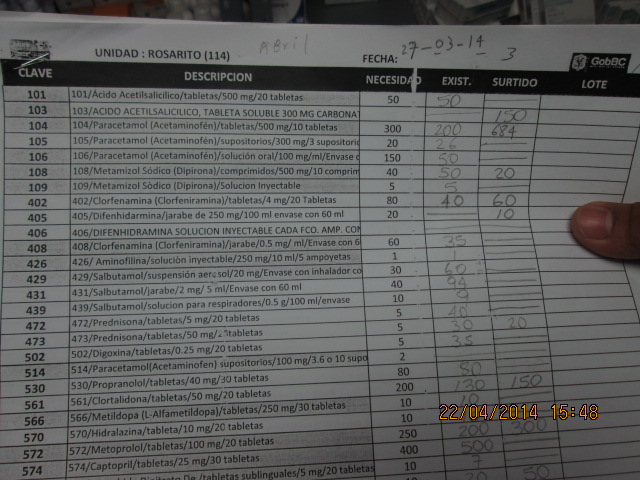 Abril
UNIDAD : ROSARITO (114) FECHA: 27-03-14 3 GobBC
CLAVE DESCRIPCION NECESIDAD EXIST. SURTIDO LOTE
101 101/Acido Acetilsalicilico/tabletas/500 mg/20 tabletas 50 50
103 103/ACIDO ACETILSALICILICO, TABLETA SOLUBLE 300 MG CARBONA 150
104 104/Paracetamol (Acetaminofén)/tabletas/500 mg/10 tabletas 300 200 684
105 105/Paracetamol (Acetaminofén)/supositorios/300 mg/3 supositorio 20 26
106 106/Paracetamol (Acetaminofén)/solución oral/100 mg/ml/Envase c 150 50
108 108/Metamizol Sódico (Dipirona)/comprimidos/500 mg/10 comprim 40 50 20
109 109/Metamizol Sódico (Dipirona)/Solucion Inyectable 5 5
402 402/Clorfenamina (Clorfeniramina)/tabletas/4 mg/20 Tabletas 80 40 60
405 405/Difenhidramina/jarabe de 250 mg/100 ml envase con 60 ml 20 10
406 406/DIFENHIDRAMINA SOLUCION INYECTABLE CADA FCO. AMP. CON
408 408/Clorfenamina (Clorfeniramina)/jarabe/0.5 mg/ ml/Envase con 6 60 35
426 426/ Aminofilina/solución inyectable/250 mg/10 ml/5 ampoyetas 1 1
429 429/Salbutamol/suspensión aerosol/20 mg/Envase con inhalador co 30 60
431 431/Salbutamol/jarabe/2 mg/ 5 ml/Envase con 60 ml 40 94
439 439/Salbutamol/solucion para respiradores/0.5 g/100 ml/envase 10 9
472 472/Prednisona/tabletas/5 mg/20 tabletas 5 40
473 473/Prednisona/tabletas/50 mg/20 tabletas 5 30 20
502 502/Digoxina/tabletas/0.25 mg/20 tabletas 5 35
514 514/Paracetamol(Acetaminofen) supositorios/100 mg/3.6 o 10 supo 2
530 530/Propranolol/tabletas/40 mg/30 tabletas 80 80
561 561/Clortalidona/tabletas/50 mg/20 tabletas 200 130 150
566 566/Metildopa (L-Alfametildopa)/tabletas/250 mg/30 tabletas 10 10
570 570/Hidralazina/tabletas/10 mg/20 tabletas 10
572 572/Metoprolol/tabletas/100 mg/20 tabletas 250 200 300
574 574/Captopril/tabletas/25 mg/30 tabletas 400 500
tabletas sublinguales/5 mg/20 tabletas 10 7
50
22/04/2014 15:48